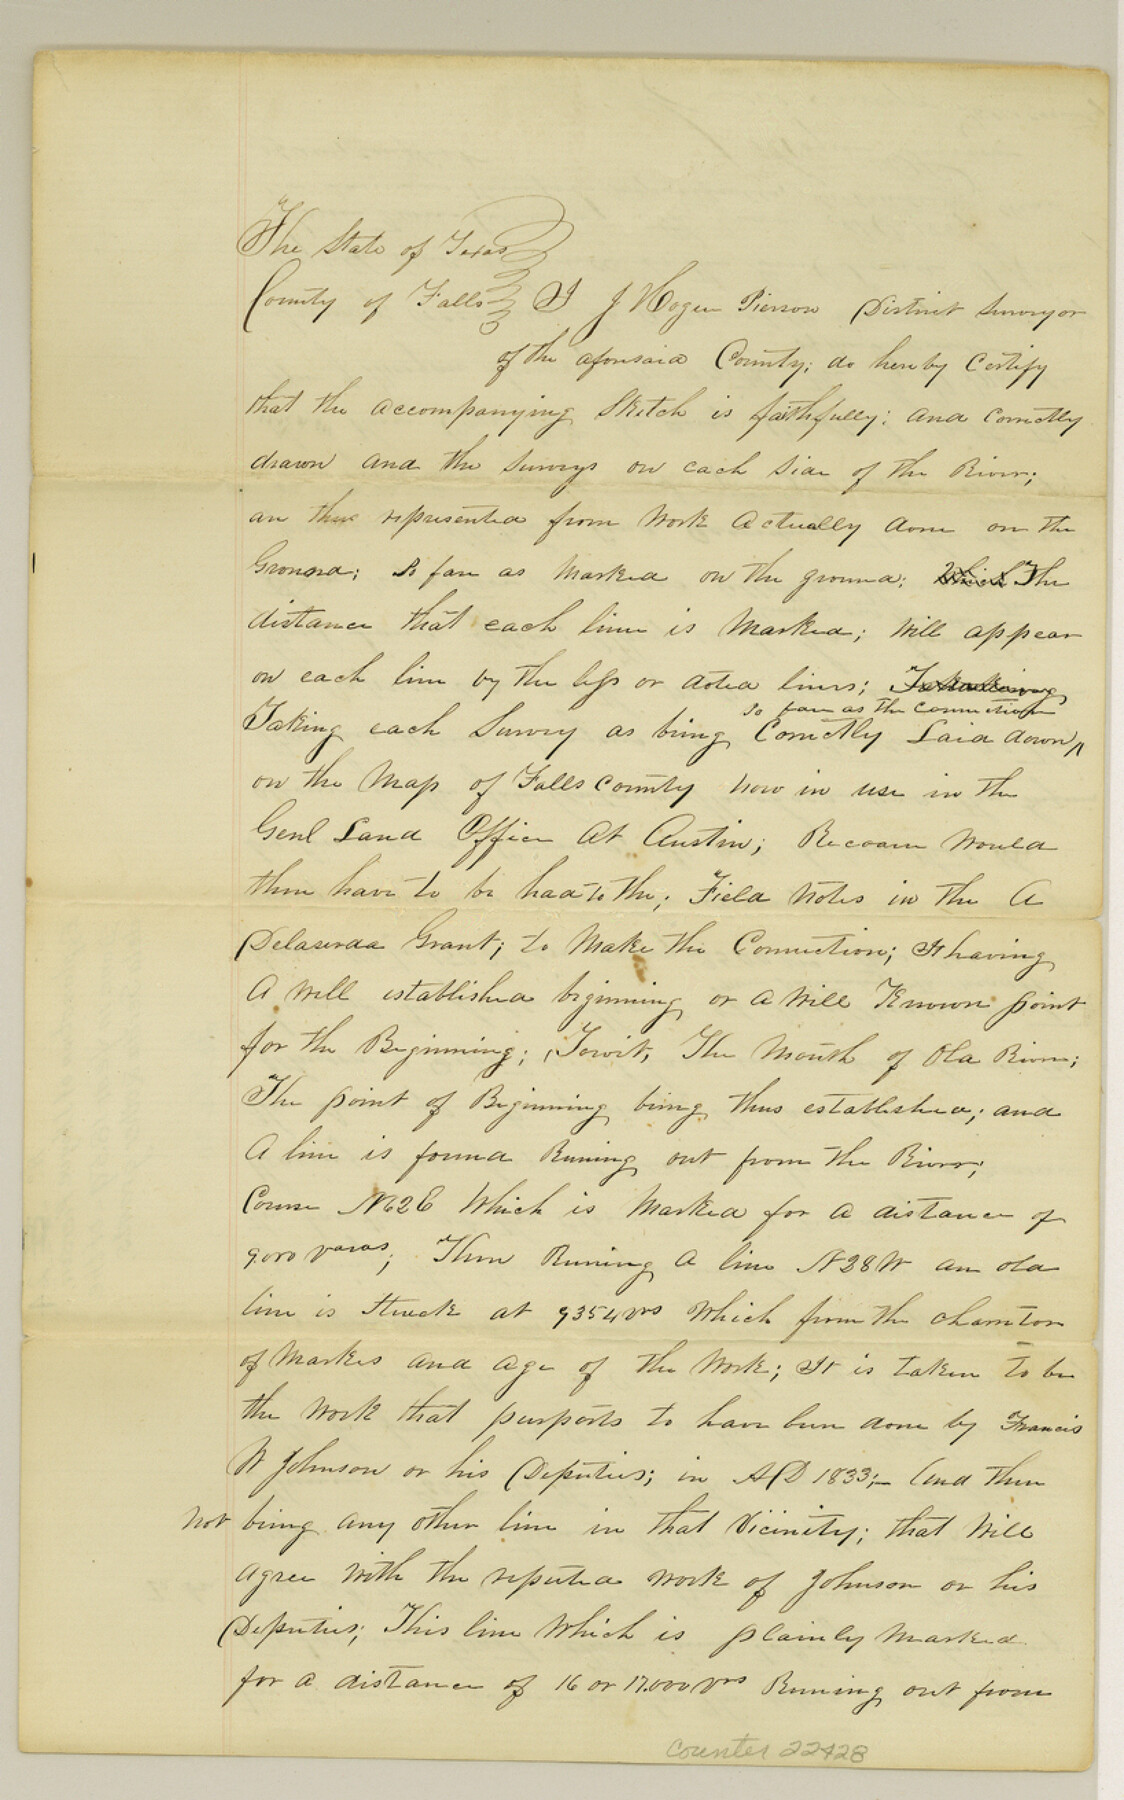 The State of Texas
County of Falls I J Hogan Pierson District Surveyor
of the aforesaid County; do hereby Certify
that the accompanying Sketch is faithfully; and Correctly
drawn and the Surveys on each Side of the River;
are thus represented from Work actually done on the
Ground; So far as Marked on the ground; Which The
distance that each line is Marked; Will appear
on each line by the legs or doted lines;
so far as the connection
Taking each Survey as being Correctly Laid down ^
on the Map of Falls County now in use in the
Genl Land Office At Austin; Recourse Would
then have to be had to the; Field Notes in the A
Delaserda Grant; to Make the Connection; It having
A Well established beginning or a Well Known point
for the Beginning; Towit, The Mouth of Old River;
The point of Beginning being thus established; and
A line is found Runing out from the River;
Course N62E Which is Marked for a distance of
9.000 varas; Then Runing A line N28W an old
line is Struck at 9354 vrs Which from the charactor
of Markes and Age of the Work; It is taken to be
the Work that purports to have been done by Francis
W Johnson or his Deputies; in AD 1833;– And there
not being any other line in that Vicinity; that Will
agree With the reputed work of Johnson or his
Deputies; This line Which is plainly Marked
for a distance of 16 or 17.000 vrs Runing out from
Counter 22428